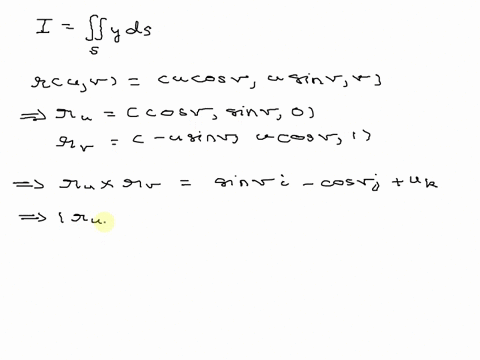 I = ∬ y ds
S
r(u,v) = (u cosv, u sinv, v)
⇒ ru = (cosv, sinv, 0)
rv = (-u sinv, u cosv, 1)
⇒ ru × rv = sinv i - cosv j + u k
⇒ |ru